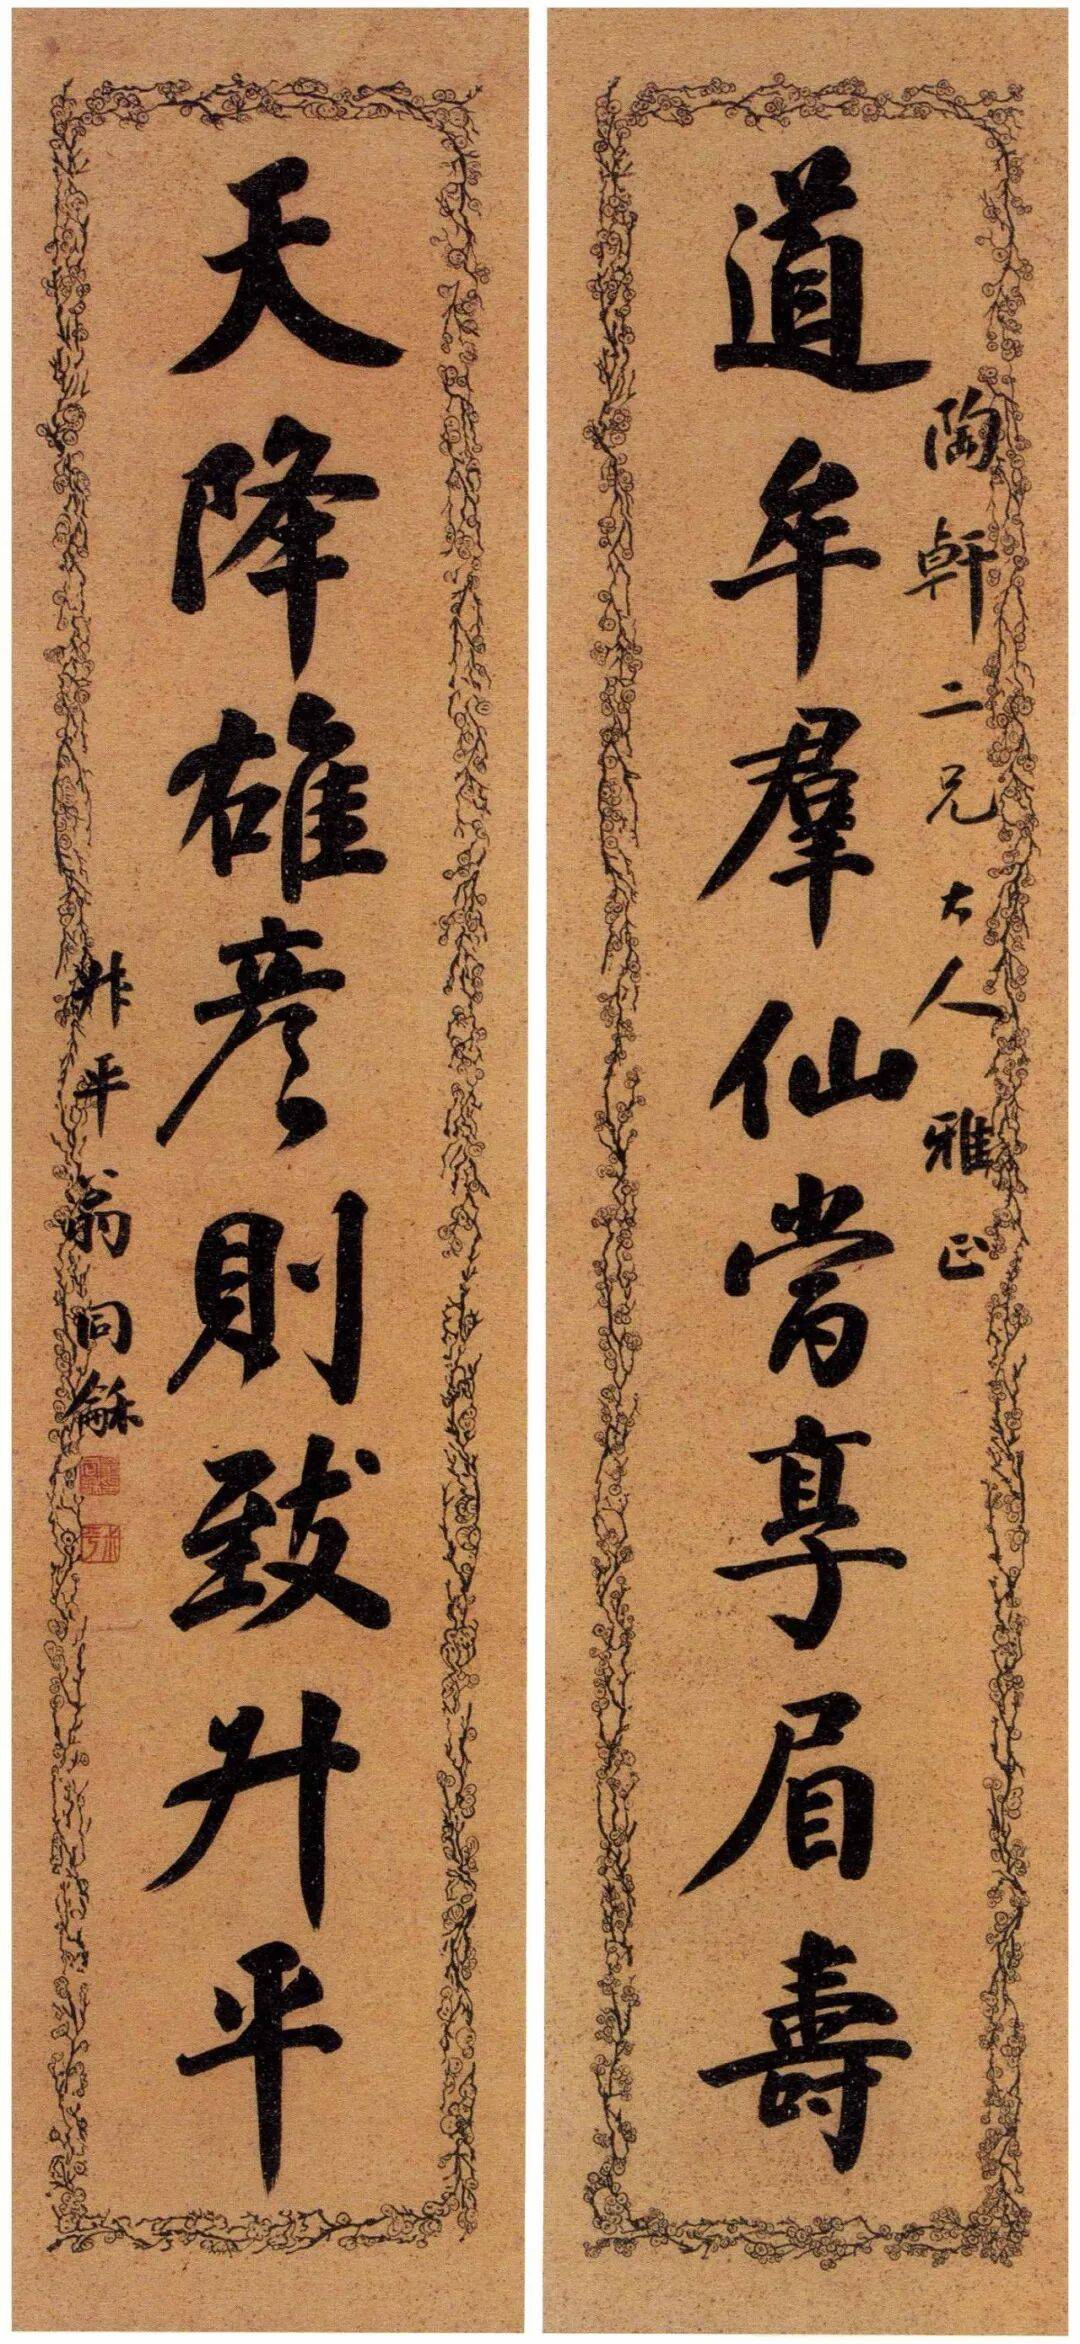 道牟羣仙常享眉壽
陶軒二兄大人雅正
天降雄彦則致升平
叔平翁同龢